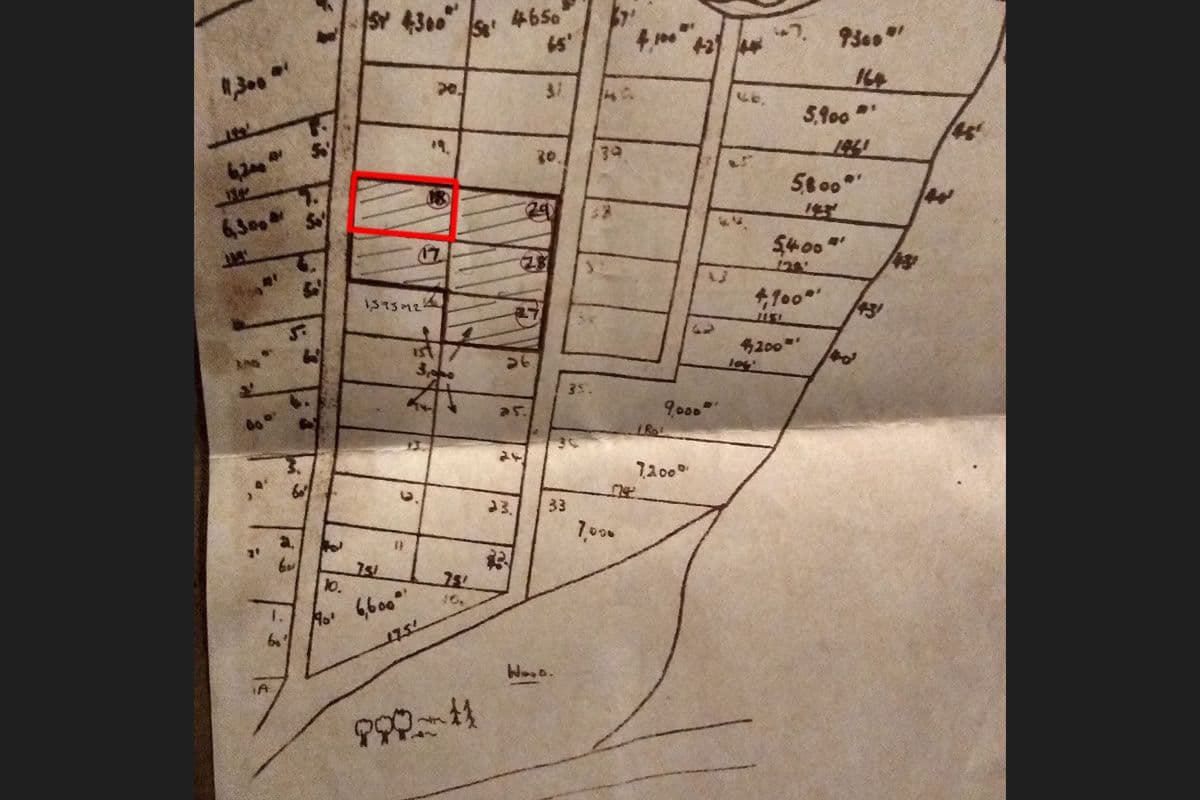 57' 4,300 58' 4650 65'
67' 4,100 42'
44' 47. 9300
164
11,300
20. 31.
46. 5,900
146' 45'
8. 50'
6,200
19. 30. 39.
45 5,800
143' 40'
7. 50'
6,300
18 29 38
44. 5,400
128' 43'
6. 50'
17 28
43 4,900
115' 43'
1,393 M2 16 27
42 4,200
106' 40'
5. 60'
15 26
3,000
35. 9,000
180'
4. 60'
14 25.
13. 24.
34 7,200
174'
3. 60'
12. 23.
33
7,000
2. 60'
40' 11 22
75' 75'
10. 10.
6,600
90' 175'
1. 60'
1A
Wood.